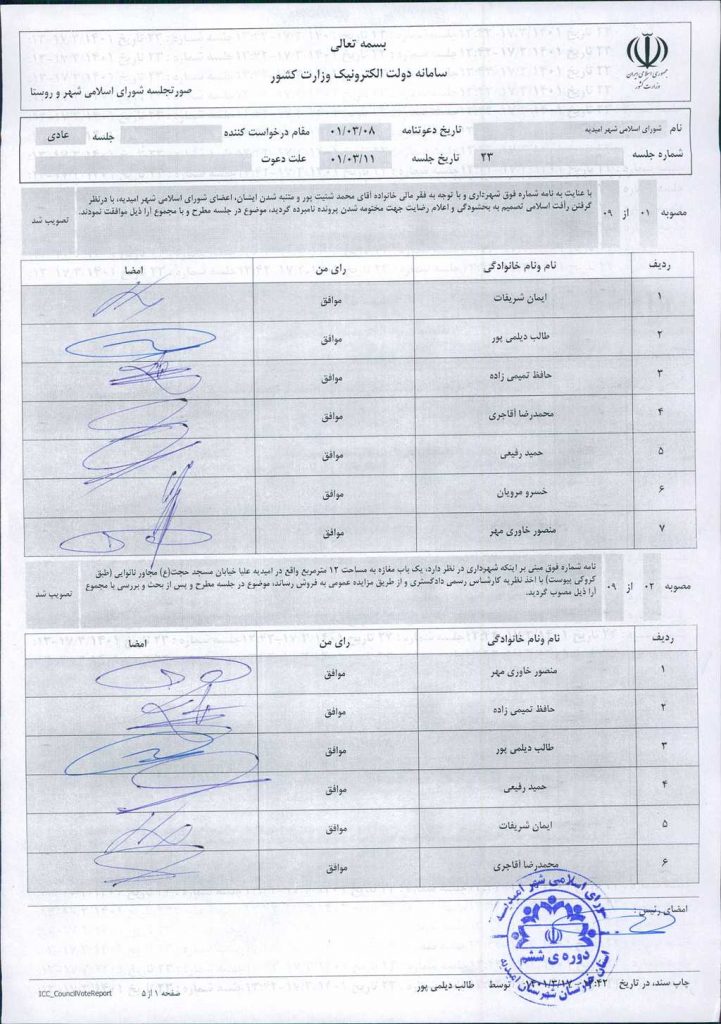 بسمه تعالی
سامانه دولت الکترونیک وزارت کشور
صورتجلسه شورای اسلامی شهر و روستا
جمهوری اسلامی ایران
وزارت کشور
نام شورای اسلامی شهر امیدیه تاریخ دعوتنامه ۰۱/۰۳/۰۸ مقام درخواست کننده جلسه عادی
شماره جلسه ۲۳ تاریخ جلسه ۰۱/۰۳/۱۱ علت دعوت
مصوبه ۰۱ از ۰۹
با عنایت به نامه شماره فوق شهرداری و با توجه به فقر مالی خانواده آقای محمد شنیت پور و متنبه شدن ایشان، اعضای شورای اسلامی شهر امیدیه، با درنظر
گرفتن رأفت اسلامی تصمیم به بخشودگی و اعلام رضایت جهت مختومه شدن پرونده نامبرده گردید، موضوع در جلسه مطرح و با مجموع آرا ذیل موافقت نمودند.
تصویب شد
ردیف نام ونام خانوادگی رای من امضا
۱ ایمان شریفات موافق
۲ طالب دیلمی پور موافق
۳ حافظ تمیمی زاده موافق
۴ محمدرضا آقاجری موافق
۵ حمید رفیعی موافق
۶ خسرو مرویان موافق
۷ منصور خاوری مهر موافق
مصوبه ۰۲ از ۰۹
نامه شماره فوق مبنی بر اینکه شهرداری در نظر دارد، یک باب مغازه به مساحت ۱۲ مترمربع واقع در امیدیه علیا خیابان مسجد حجت(ع) مجاور نانوایی (طبق
کروکی پیوست) با اخذ نظریه کارشناس رسمی دادگستری و از طریق مزایده عمومی به فروش رساند، موضوع در جلسه مطرح و پس از بحث و بررسی با مجموع
آرا ذیل مصوب گردید.
تصویب شد
ردیف نام ونام خانوادگی رای من امضا
۱ منصور خاوری مهر موافق
۲ حافظ تمیمی زاده موافق
۳ طالب دیلمی پور موافق
۴ حمید رفیعی موافق
۵ ایمان شریفات موافق
۶ محمدرضا آقاجری موافق
امضای رئیس :
شورای اسلامی شهر امیدیه
دوره ی ششم
استان خوزستان شهرستان امیدیه
چاپ سند، در تاریخ ۱۴۰۱/۳/۱۷ توسط طالب دیلمی پور
صفحه ۱ از ۵
ICC_CouncilVoteReport